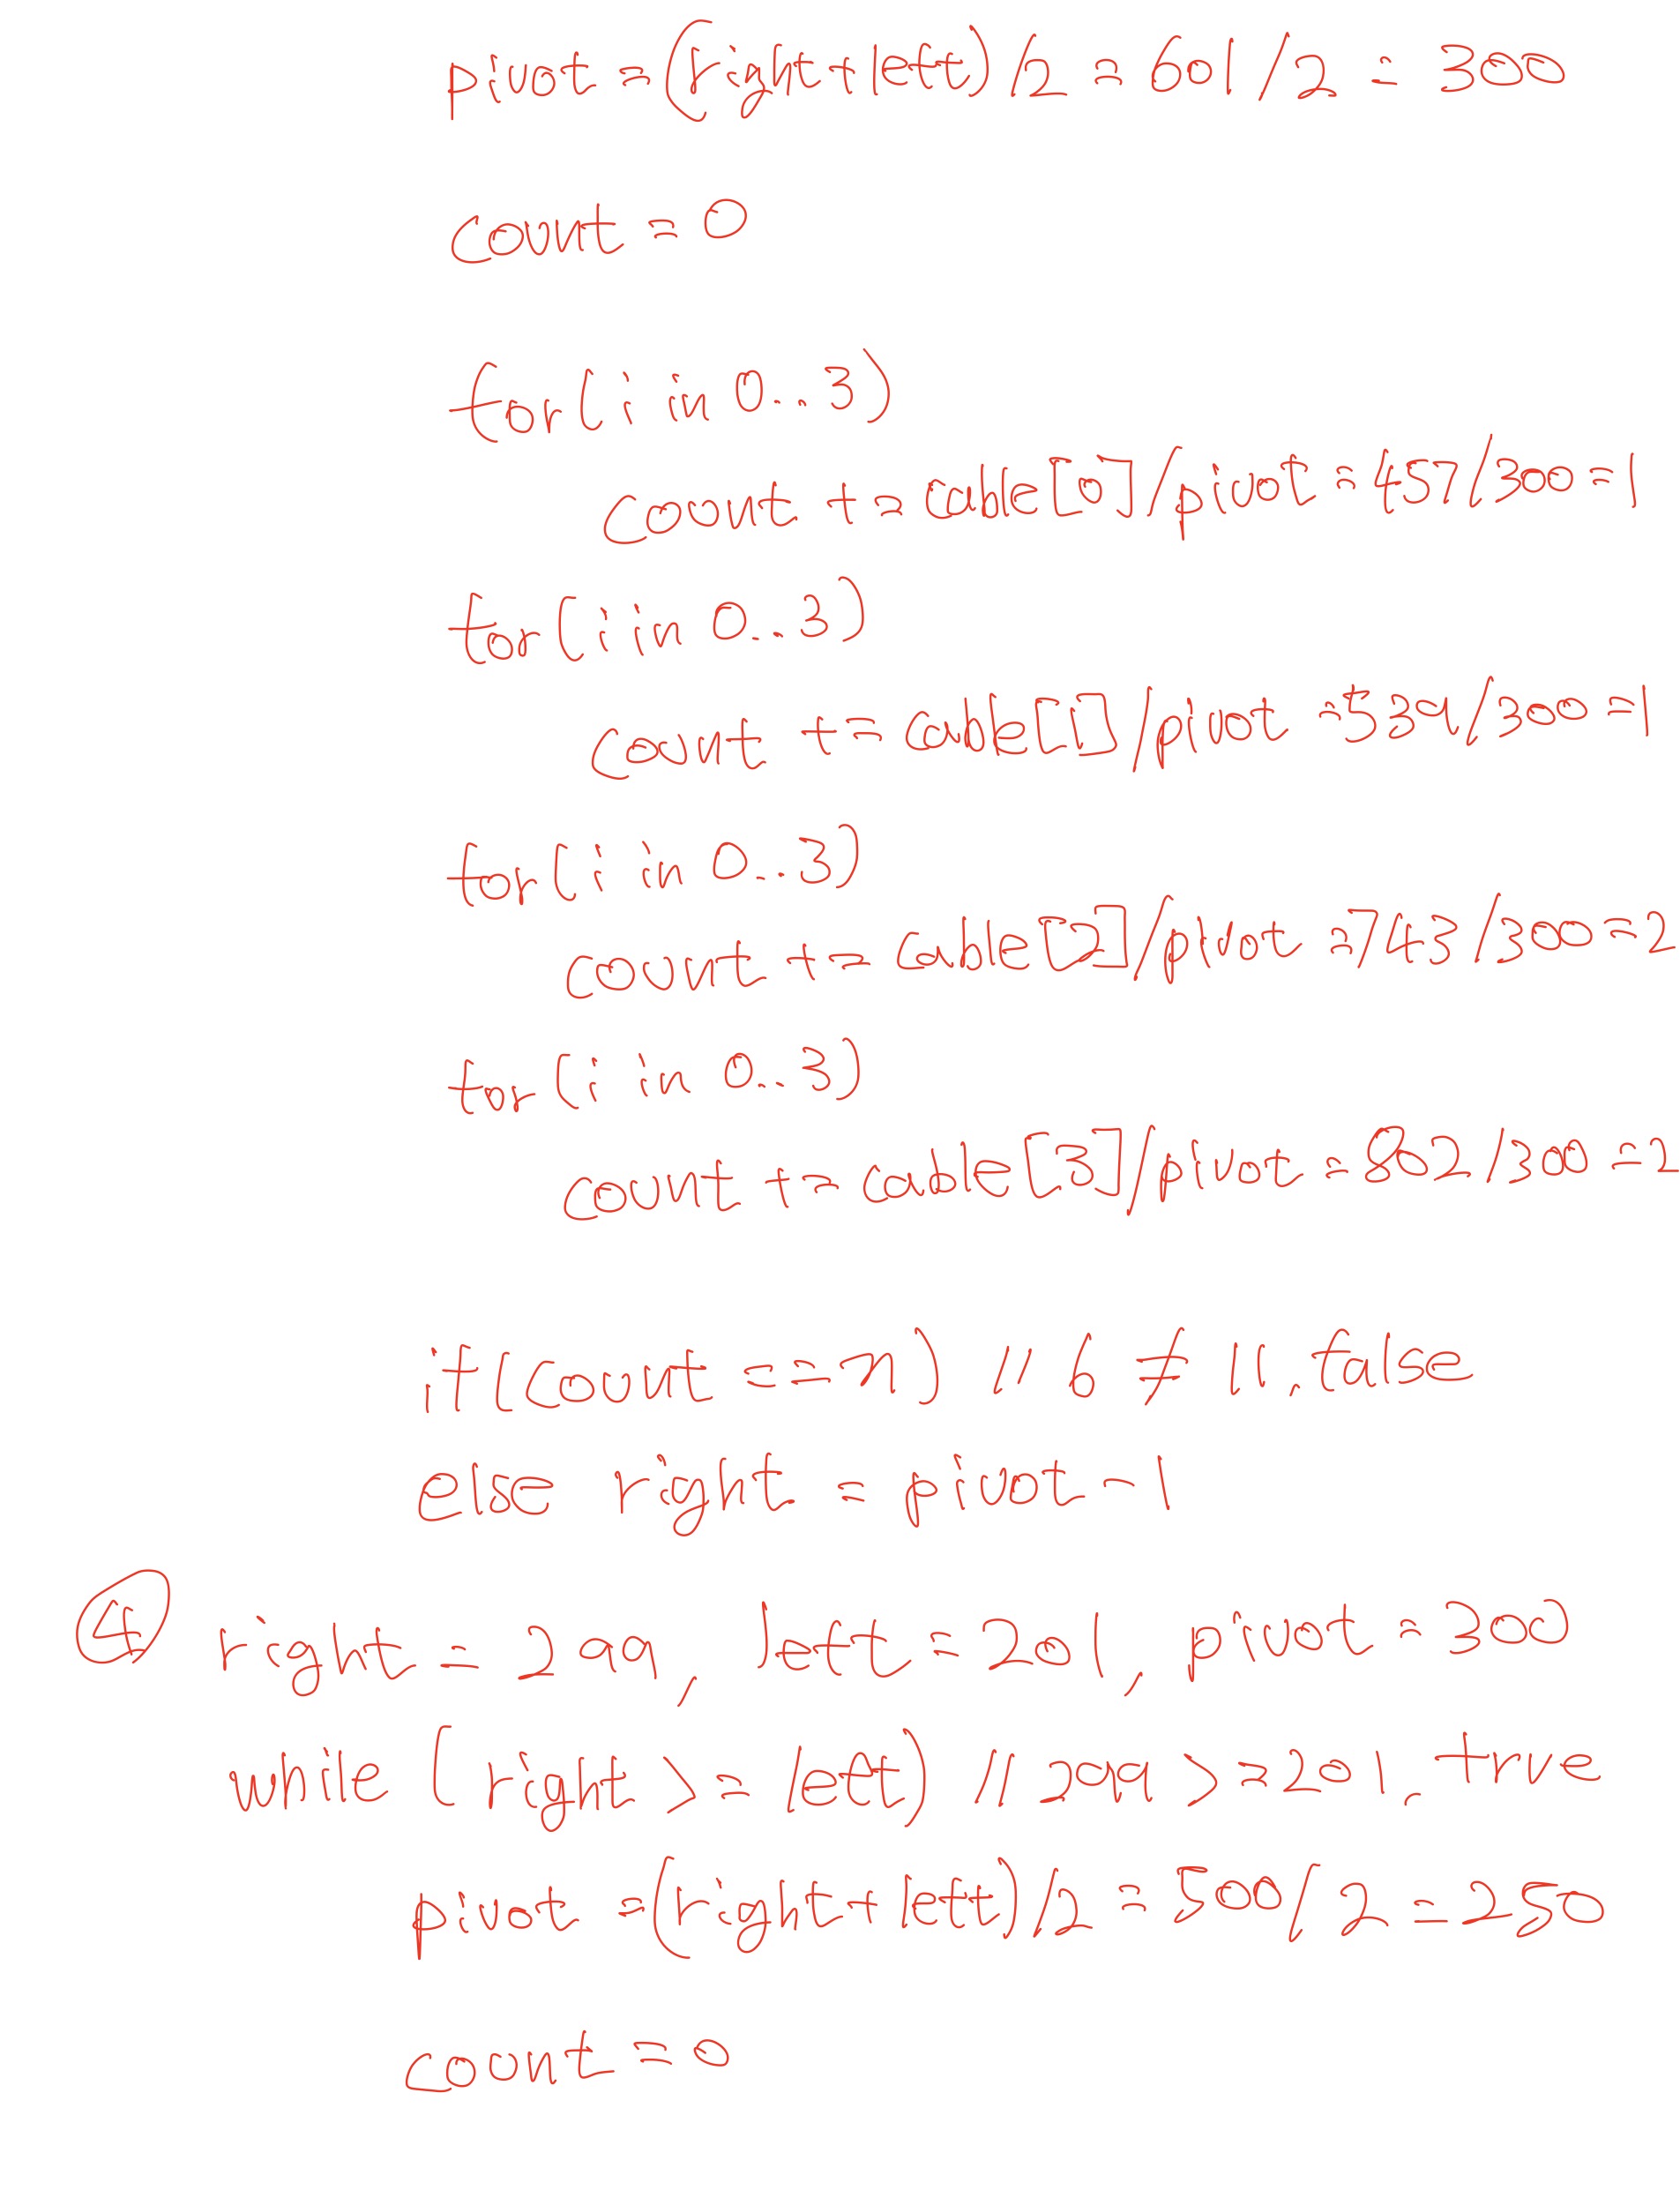 pivot = (right+left)/2 = 601/2 = 300
count = 0
for(i in 0..3)
count += cable[0]/pivot = 457/300 = 1
for(i in 0..3)
count += cable[1]/pivot = 539/300 = 1
for(i in 0..3)
count += cable[2]/pivot = 743/300 = 2
for(i in 0..3)
count += cable[3]/pivot = 802/300 = 2
if(count == n) // 6 ≠ 11. false
else right = pivot - 1
④ right = 299, left = 201, pivot = 300
while (right >= left) // 299 >= 201. true
pivot = (right+left)/2 = 500/2 = 250
count = 0